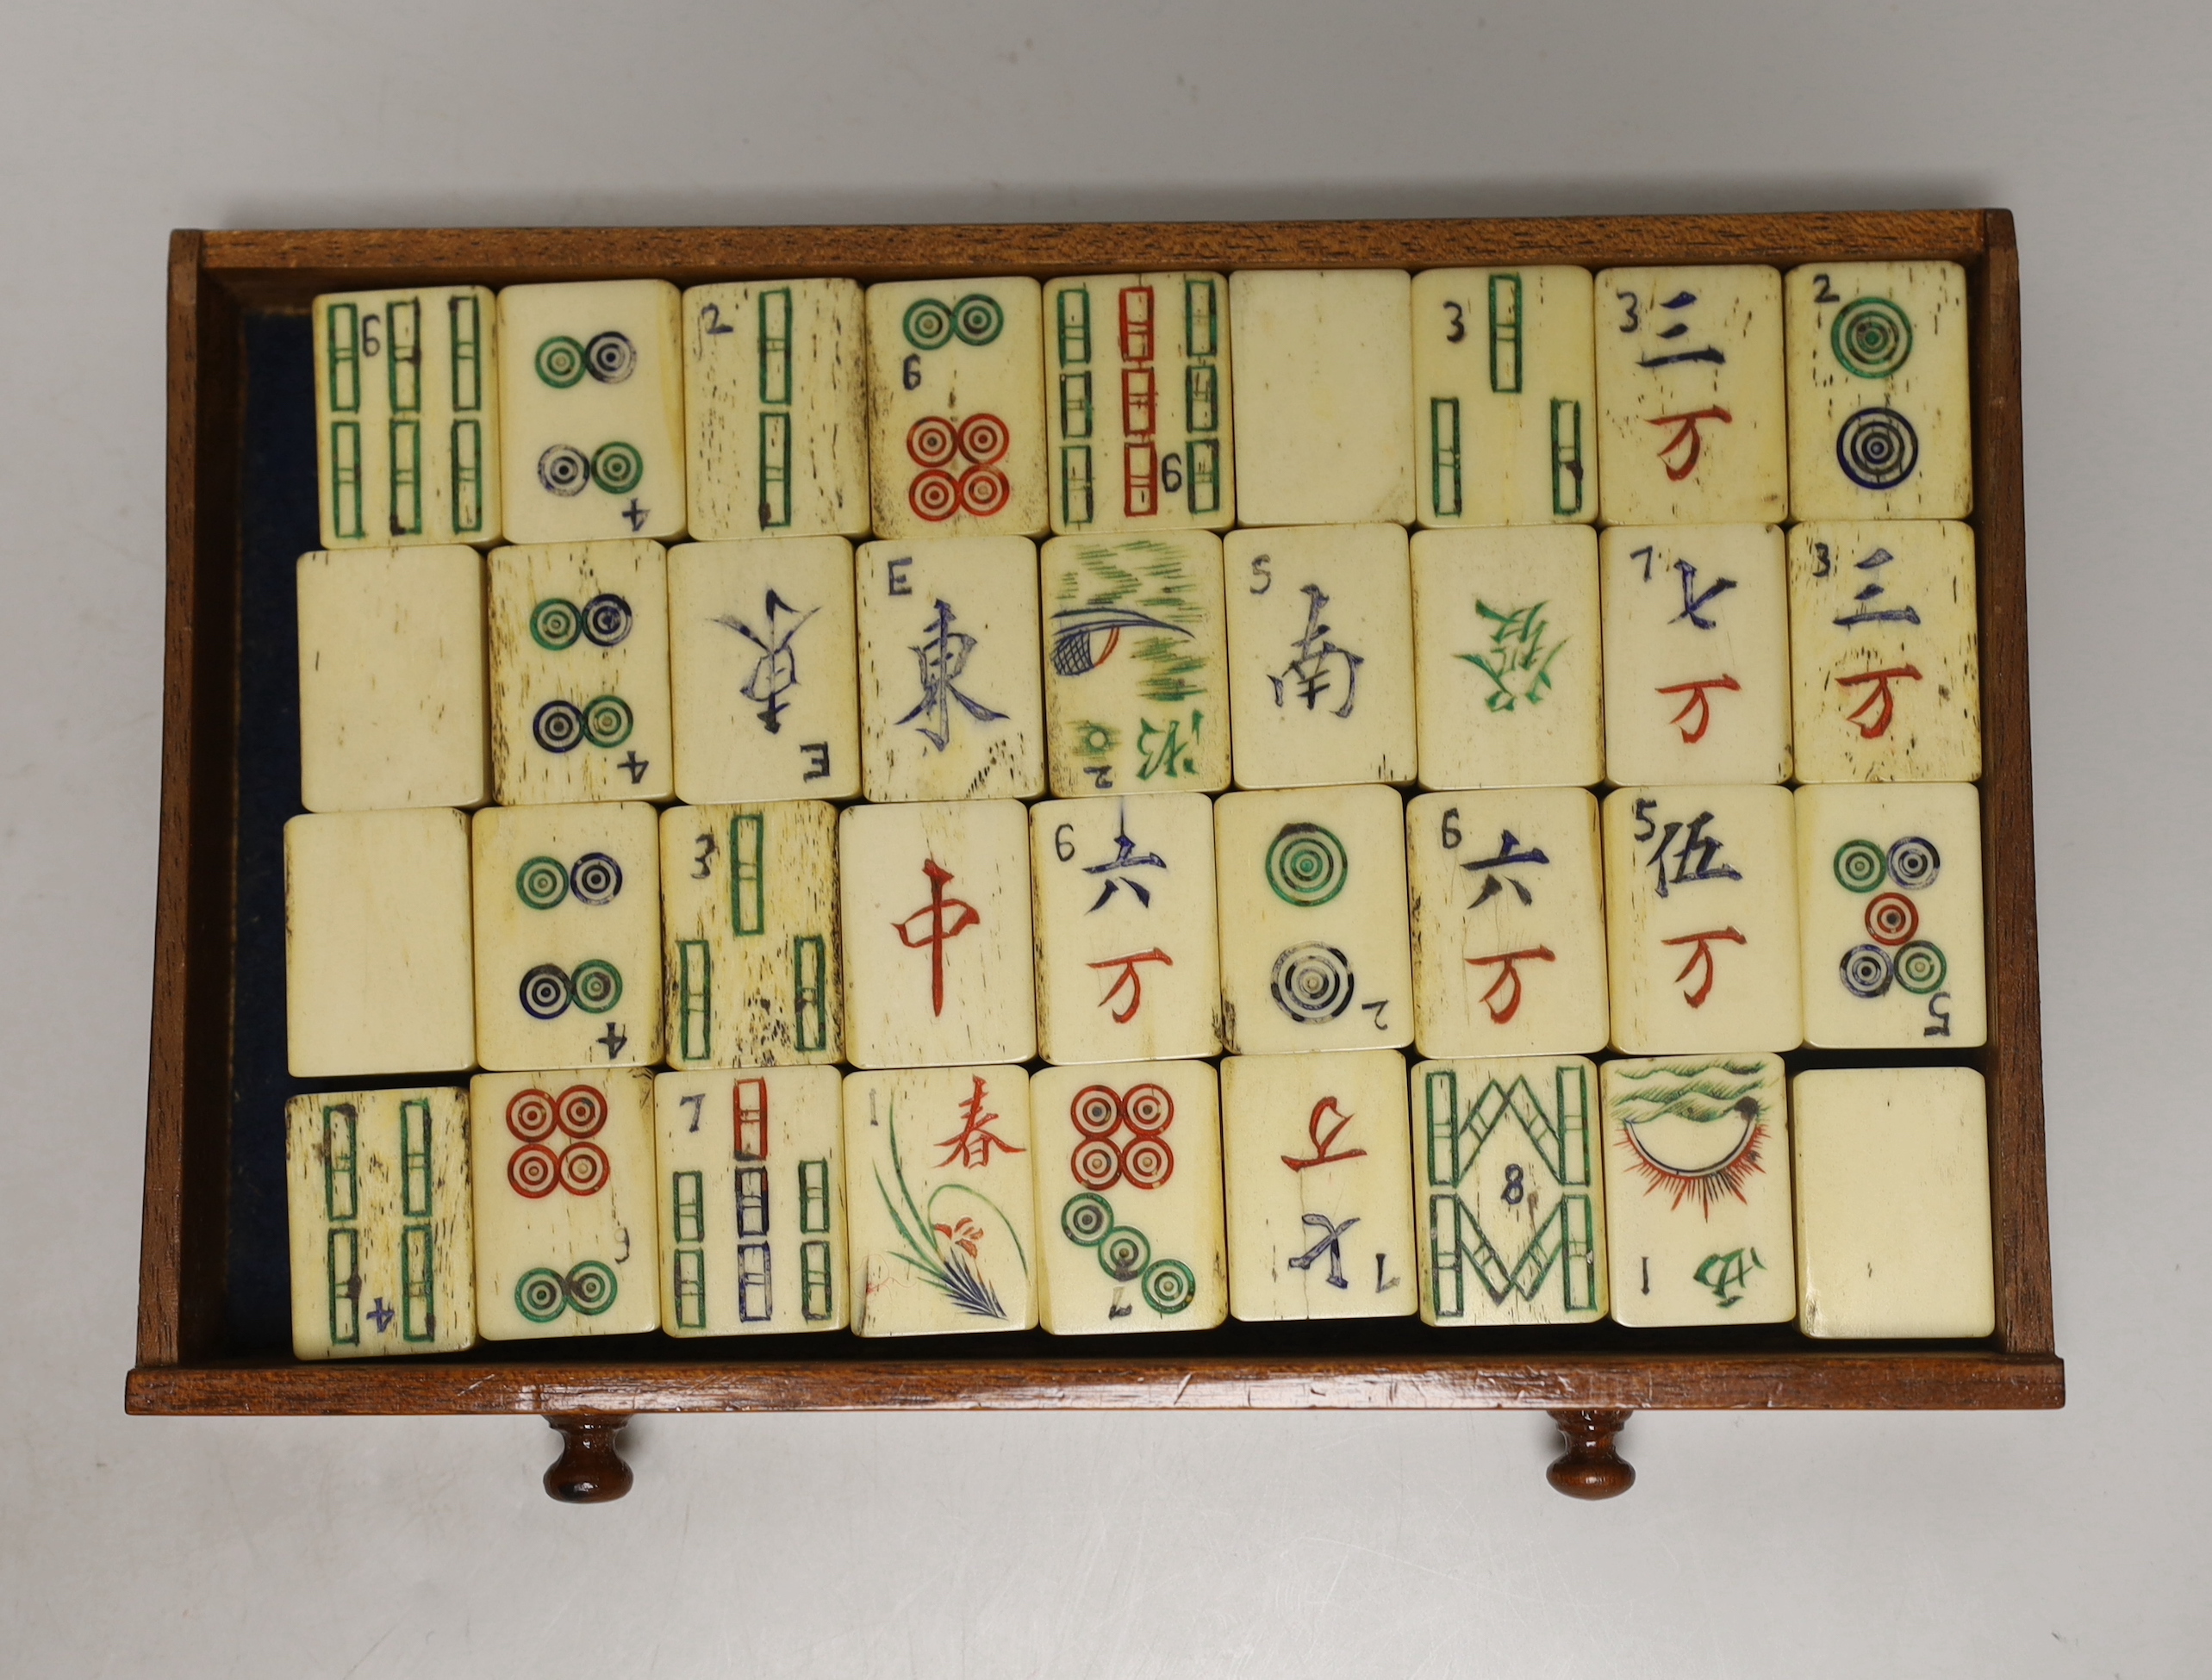 6
4
2
6
9
3
3
三
万
2
4
東
E
E
東
2
S
南
發
7
七
万
3
三
万
4
3
中
6
六
万
2
6
六
万
5
伍
万
5
4
6
7
1
春
7
万
七
7
8
1